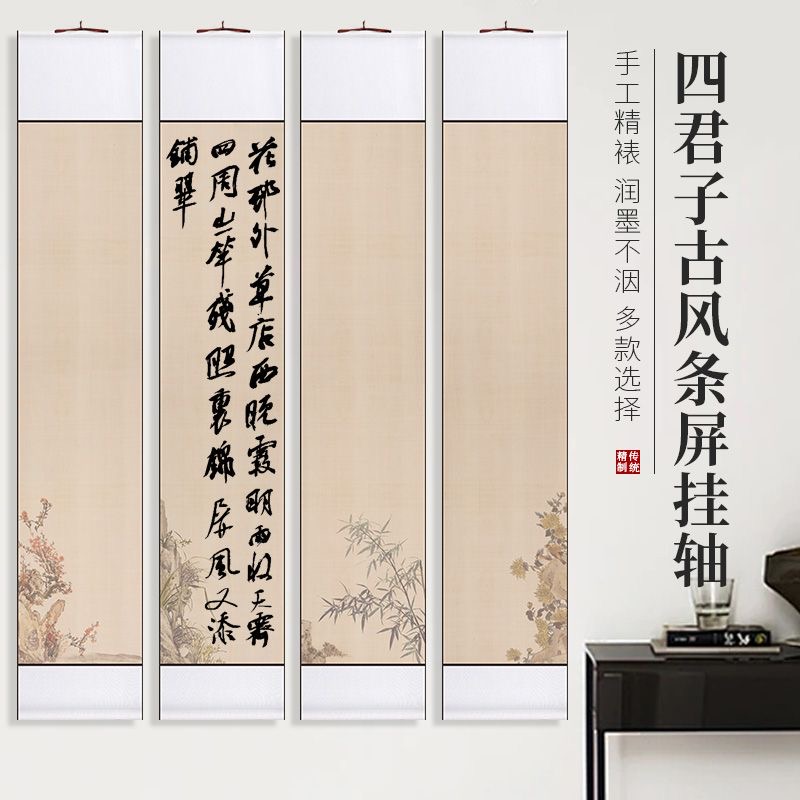 四君子古风条屏挂轴
手工精裱 润墨不洇 多款选择
传统
精制
花邨外草店西晚霞明雨收天霽
四周山一竿殘照裏錦屏風又添
鋪翠